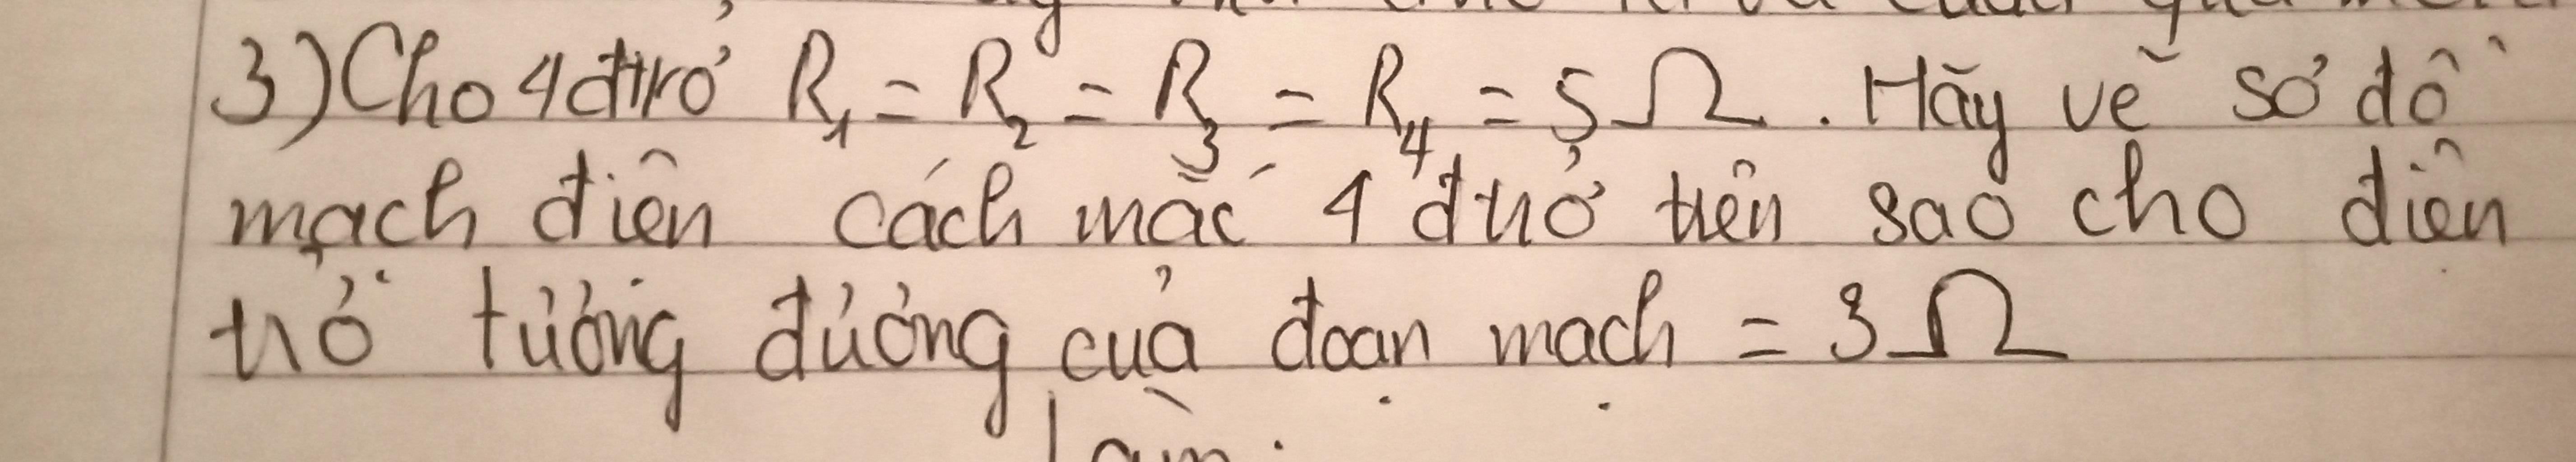 3) Cho 4 đtrở R₁ = R₂ = R₃ = R₄ = 5 Ω. Hãy vẽ sơ đồ
mạch điện cách mắc 4 đtrở trên sao cho điện
trở tương đương của đoạn mạch = 3 Ω
Làm: